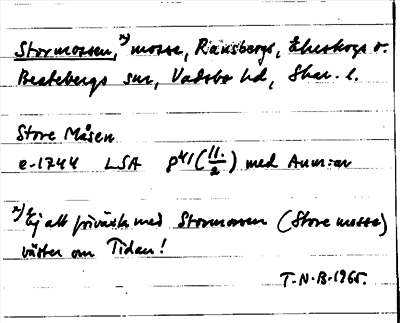 Stormossen, x) mosse, Ransbergs, Ekeskogs o.
Beatebergs snr, Vadsbo hd, Skar. l.
Store Måsen
e. 1744 LSA P 41 (11./2) med Anm:ar
x) Ej att förväxla med Stormossen (Store mosse)
väster om Tidan!
T.N.B. 1965.